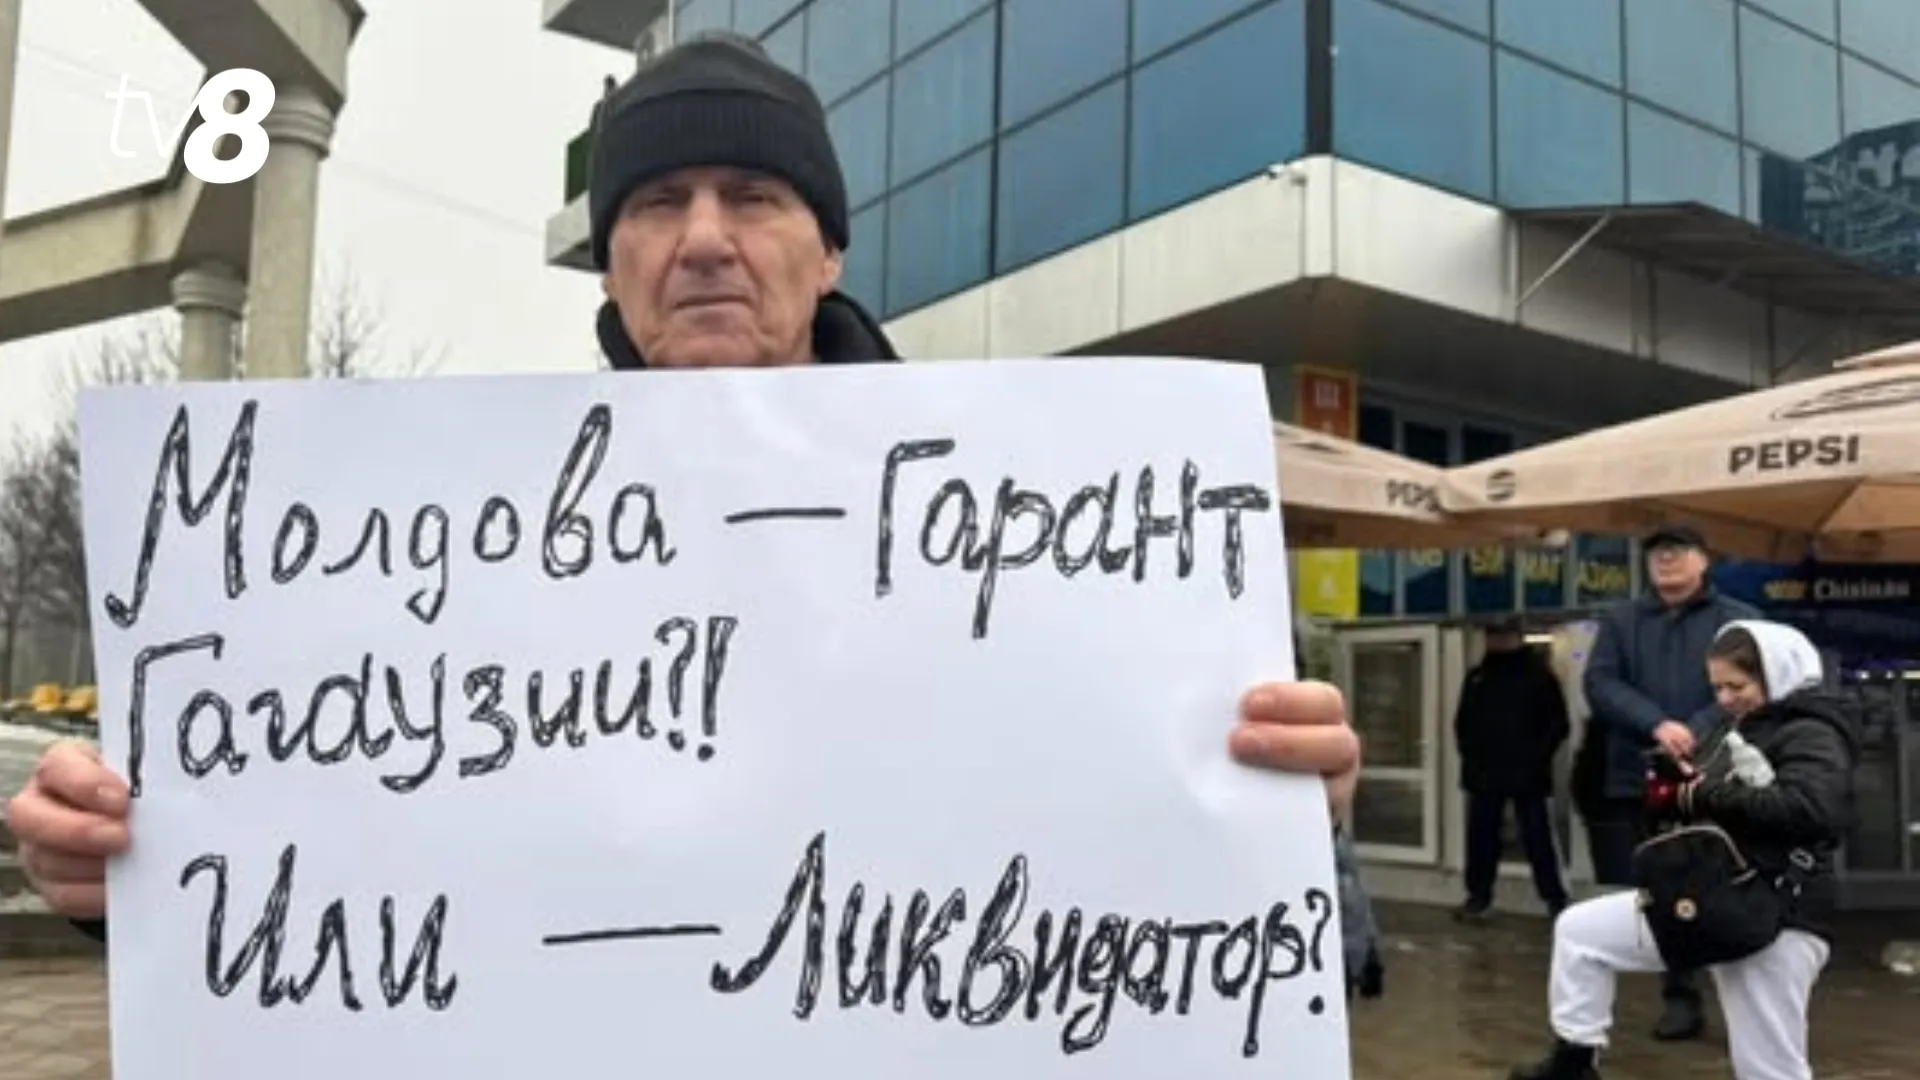 tv8
Молдова — Гарант
Гагаузии?!
Или — Ликвидатор?
PEPSI
PEPS
АЗИН
Chisinau